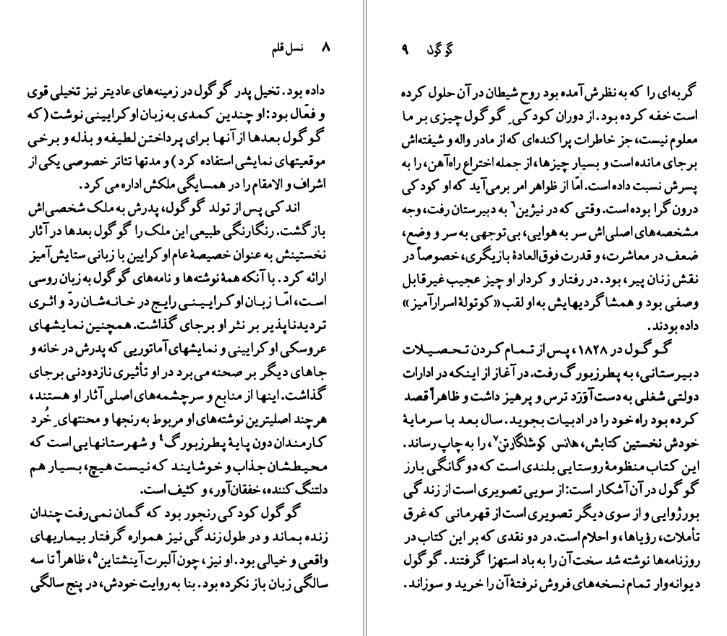 ۸ نسل قلم
داده بود. تخیل پدر گوگول در زمینه‌های عادیتر نیز تخیلی قوی
و فعّال بود: او چندین کمدی به زبان اوکرایینی نوشت (که
گوگول بعدها از آنها برای پرداختن لطیفه و بذله و برخی
موقعیتهای نمایشی استفاده کرد) و مدتها تئاتر خصوصی یکی از
اشراف والامقام را در همسایگی ملکش اداره می‌کرد.
اندکی پس از تولد گوگول، پدرش به ملک شخصی‌اش
بازگشت. رنگارنگی طبیعی این ملک را گوگول بعدها در آثار
نخستینش به عنوان خصیصهٔ عام اوکرایین با زبانی ستایش‌آمیز
ارائه کرد. با آنکه همهٔ نوشته‌ها و نامه‌های گوگول به زبان روسی
است، امّا زبان اوکرایینی رایج در خانه‌شان ردّ و اثری
تردیدناپذیر بر نثر او برجای گذاشت. همچنین نمایشهای
عروسکی اوکرایینی و نمایشهای آماتوریی که پدرش در خانه و
جاهای دیگر بر صحنه می‌برد در او تأثیری نازدودنی برجای
گذاشت. اینها از منابع و سرچشمه‌های اصلی آثار او هستند،
هرچند اصلیترین نوشته‌های او مربوط به رنجها و محنتهای خُرد
کارمندان دون پایهٔ پطرزبورگ۴ و شهرستانهایی است که
محیطشان جذاب و خوشایند که نیست هیچ، بسیار هم
دلتنگ‌کننده، خفقان‌آور، و کثیف است.
گوگول کودکی رنجور بود که گمان نمی‌رفت چندان
زنده بماند و در طول زندگی نیز همواره گرفتار بیماریهای
واقعی و خیالی بود. او نیز، چون آلبرت آینشتاین۵، ظاهراً تا سه
سالگی زبان باز نکرده بود. بنا به روایت خودش، در پنج سالگی
گوگول ۹
گربه‌ای را که به نظرش آمده بود روح شیطان در آن حلول کرده
است خفه کرده بود. از دوران کودکیِ گوگول چیزی بر ما
معلوم نیست، جز خاطرات پراکنده‌ای که از مادر واله و شیفته‌اش
برجای مانده است و بسیار چیزها، از جمله اختراع راه‌آهن، را به
پسرش نسبت داده است. امّا از ظواهر امر برمی‌آید که او کودکی
درون گرا بوده است. وقتی که در نیژین۶ به دبیرستان رفت، وجه
مشخصه‌های اصلی‌اش سر به هوایی، بی‌توجهی به سر و وضع،
ضعف در معاشرت، و قدرت فوق‌العادهٔ بازیگری، خصوصاً در
نقش زنان پیر، بود. در رفتار و کردار او چیز عجیب غیرقابل
وصفی بود و همشاگردیهایش به او لقب «کوتولهٔ اسرارآمیز»
داده بودند.
گوگول در ۱۸۲۸، پس از تمام کردن تحصیلات
دبیرستانی، به پطرزبورگ رفت. در آغاز از اینکه در ادارات
دولتی شغلی به دست آوَرَد ترس و پرهیز داشت و ظاهراً قصد
کرده بود راه خود را در ادبیات بجوید. سال بعد با سرمایهٔ
خودش نخستین کتابش، هانس کوشلگارتن۷، را به چاپ رساند.
این کتاب منظومهٔ روستایی بلندی است که دوگانگی بارز
گوگول در آن آشکار است: از سویی تصویری است از زندگی
بورژوایی و از سوی دیگر تصویری است از قهرمانی که غرق
تأملات، رؤیاها، و احلام است. در دو نقدی که بر این کتاب در
روزنامه‌ها نوشته شد سخت آن را به باد استهزا گرفتند. گوگول
دیوانه‌وار تمام نسخه‌های فروش نرفتهٔ آن را خرید و سوزاند.